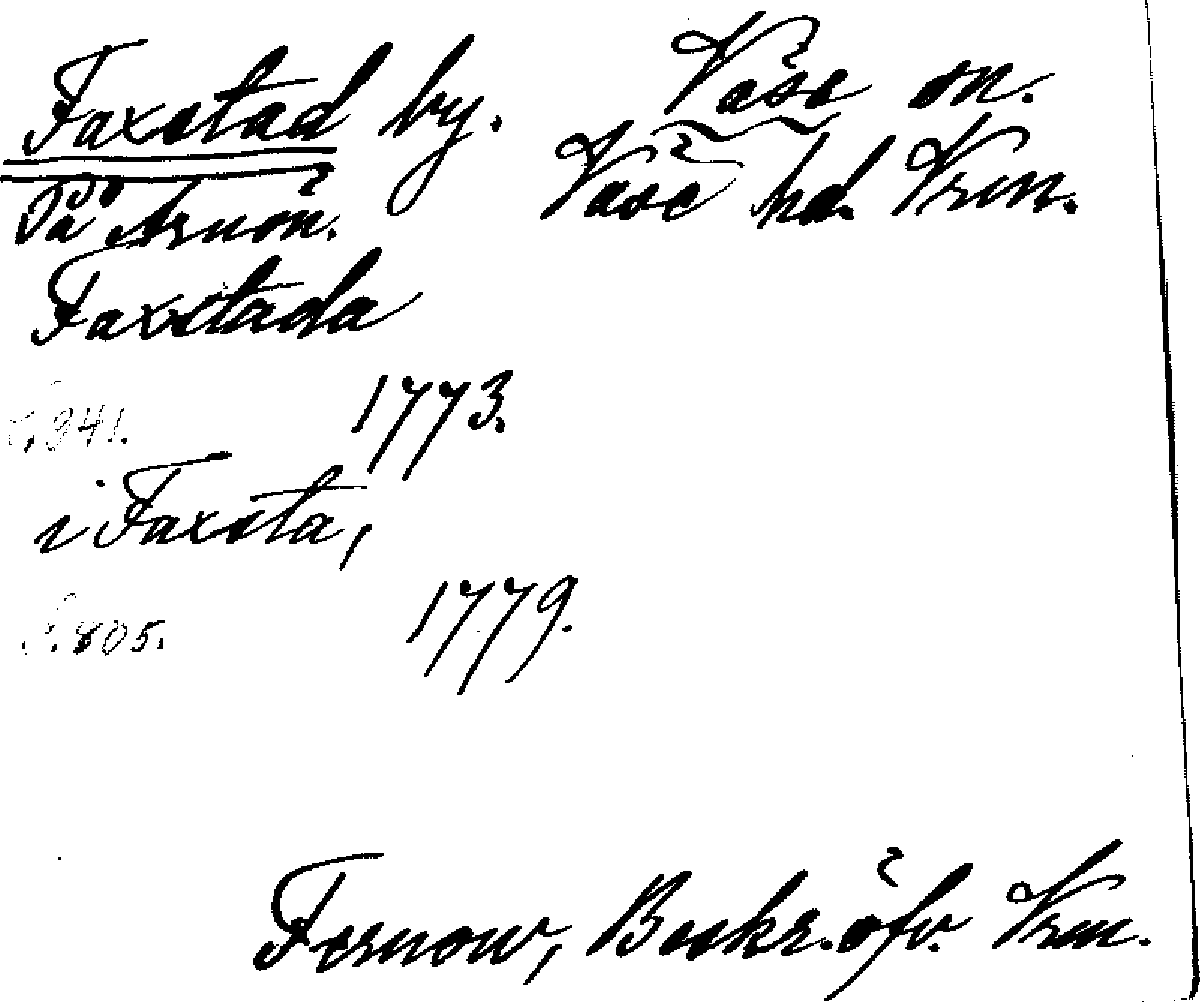 Faxstad by. Väse sn.
På Arnön. Väse hd. Vrm.
Faxstada
s. 341. 1773.
i Faxsta,
s. 805. 1779.
Fernow, Beskr. öfv. Vrm.